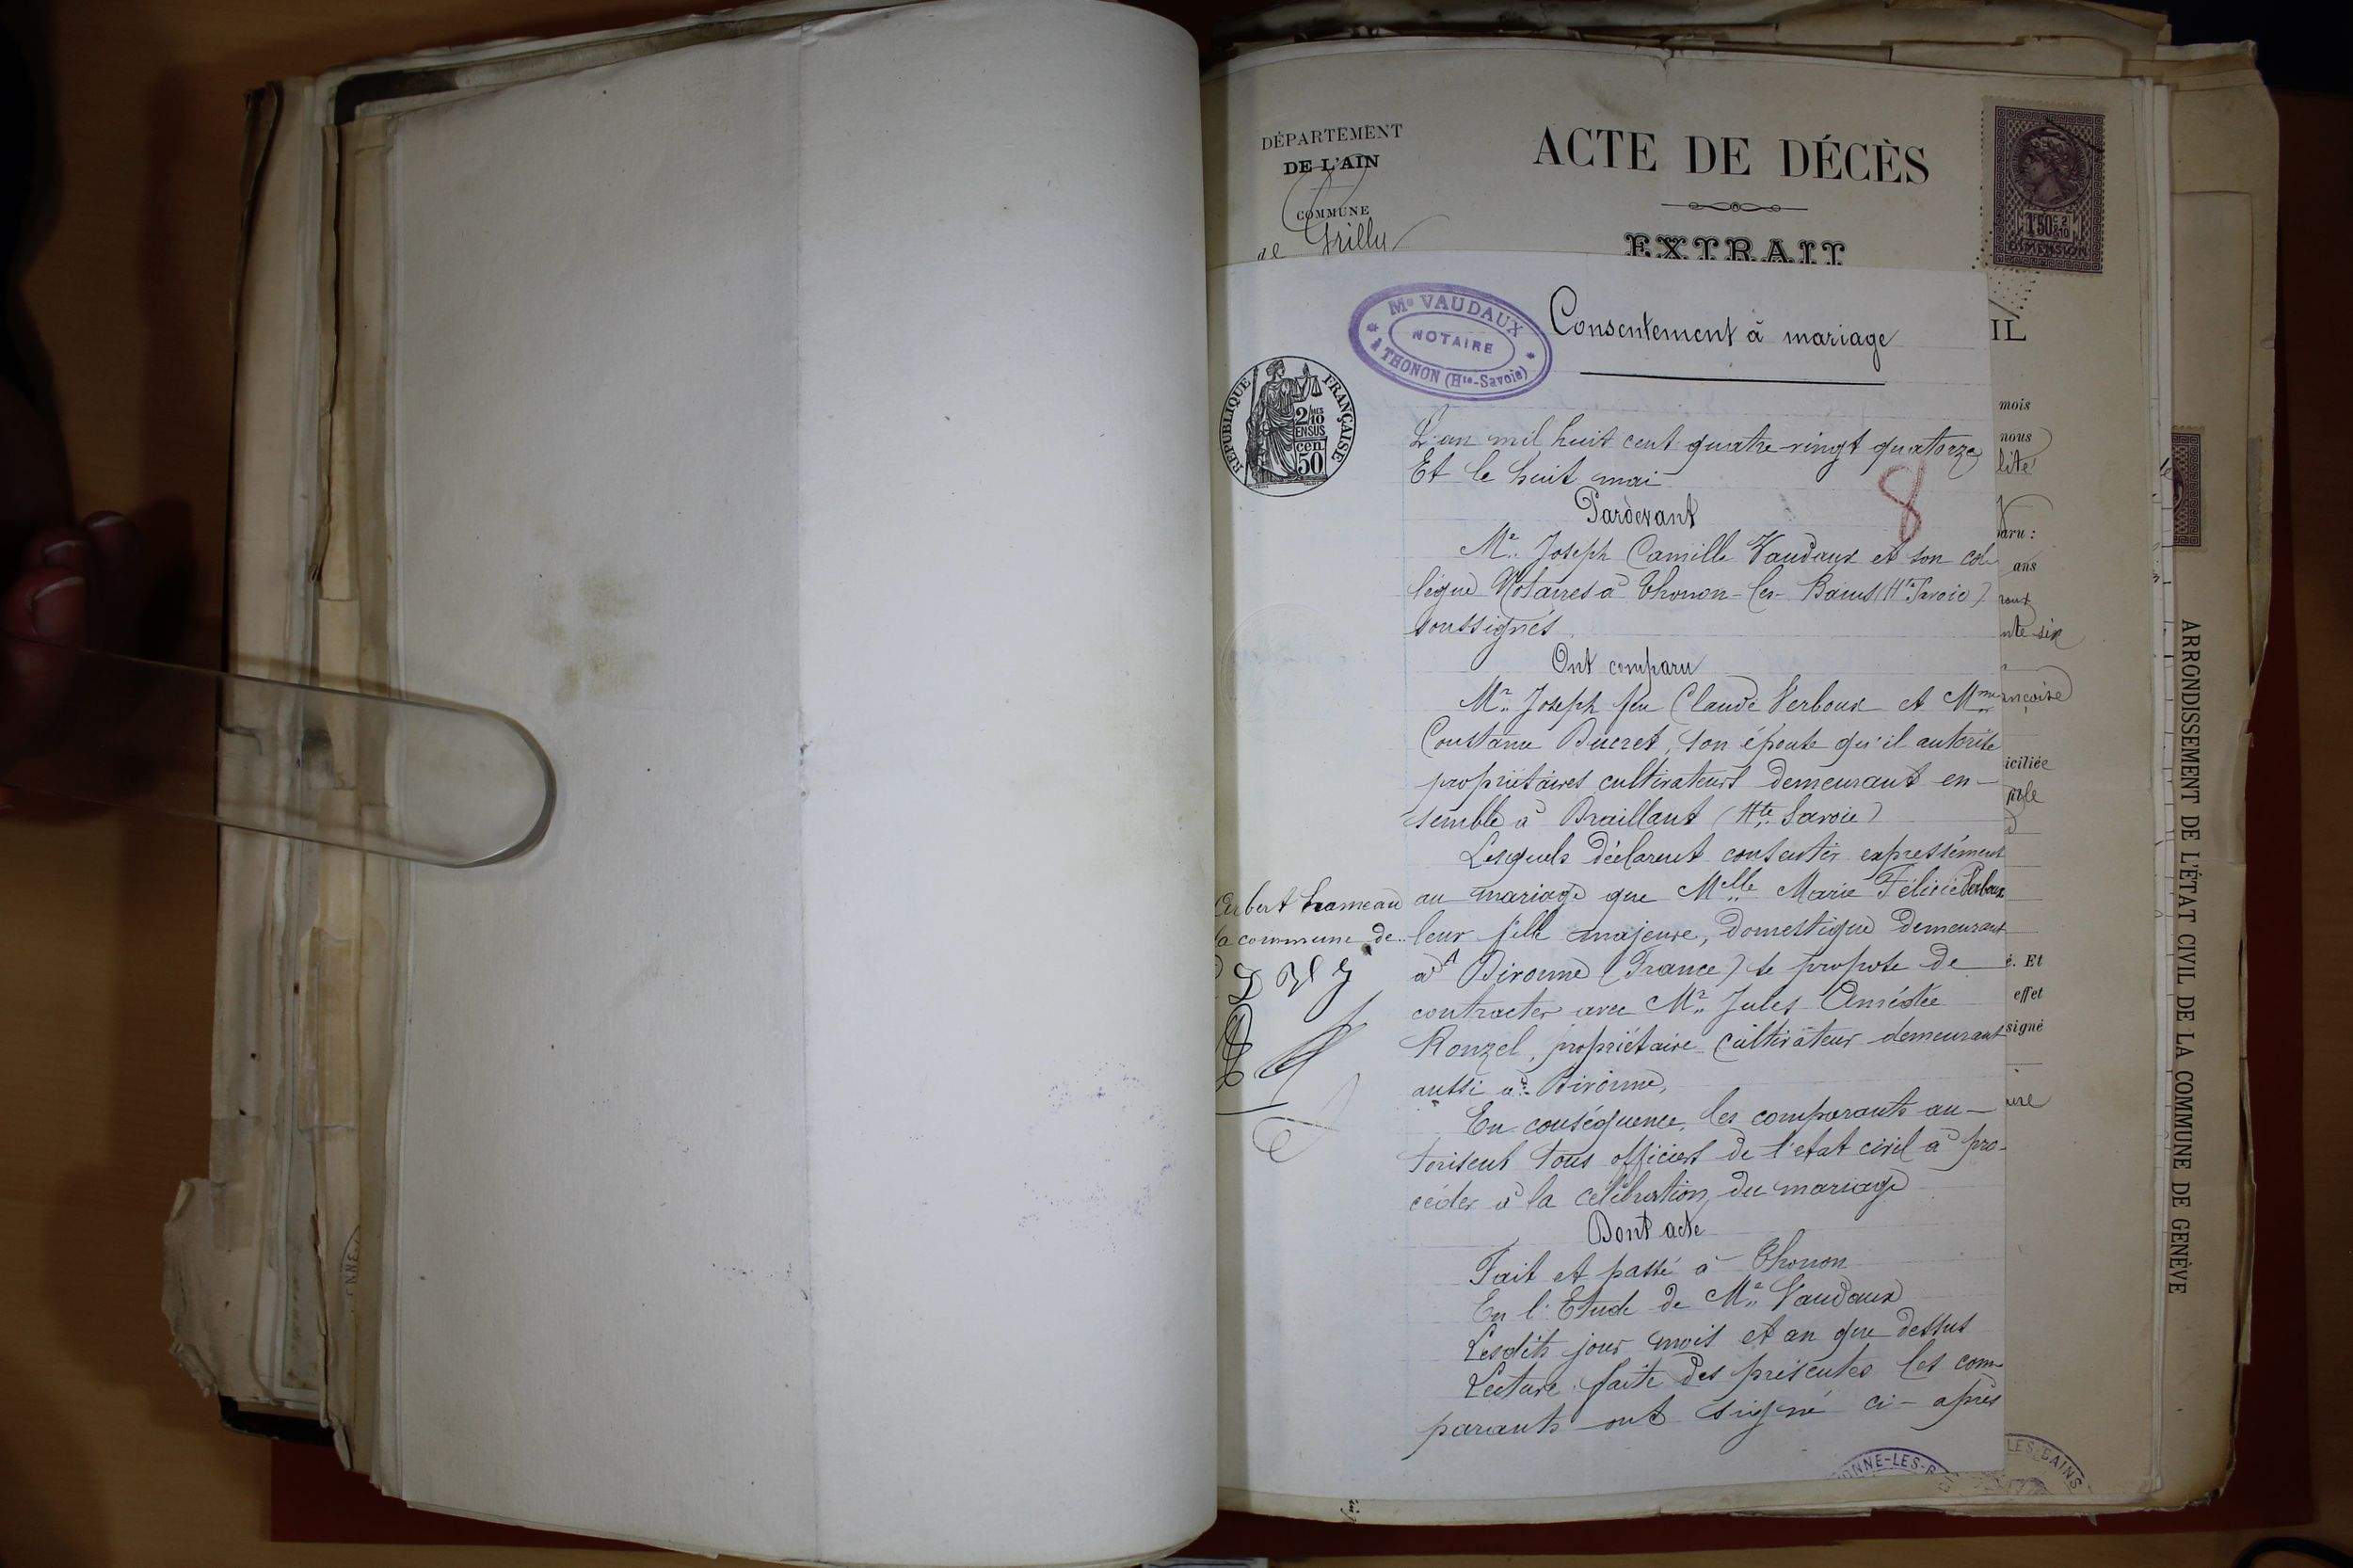 DÉPARTEMENT
DE L'AIN
COMMUNE
de Grilly
ACTE DE DÉCÈS
EXTRAIT
1F50c 2/10
DIMENSION
IL
Me VAUDAUX
NOTAIRE
à THONON (Hte-Savoie)
Consentement à mariage
RÉPUBLIQUE FRANÇAISE
2/10 MES
EN SUS
50 cen
L'an mil huit cent quatre-vingt quatorze
Et le huit mai
8
Pardevant
Me Joseph Camille Vaudaux et son col-
lègue Notaires à Thonon-les-Bains (Hte Savoie)
soussignés
Ont comparu
Mr Joseph feu Claude Verboux et Mme
Constance Ducret, son épouse qu'il autorise
propriétaires cultivateurs demeurant en-
semble à Draillant (Hte Savoie)
Lesquels déclarent consentir expressément
au mariage que Melle Marie Félicie Verboux
leur fille majeure, domestique demeurant
à Divonne (France) se propose de
contracter avec Mr Jules Amédée
Ronzel, propriétaire cultivateur demeurant
aussi à Divonne,
En conséquence, les comparants au-
torisent tous officiers de l'etat civil à pro-
céder à la célébration du mariage
Dont acte
Fait et passé à Thonon
En l'Etude de Me Vaudaux
Lesdits jour mois et an que dessus
Lecture faite des présentes les com-
parants ont signé ci-après
hameau
la commune de
mois
nous
lité
aru :
ans
nte six
ançoise
iciliée
é. Et
effet
signé
ONNE-LES-B
LES-BAINS
ARRONDISSEMENT DE L'ÉTAT CIVIL DE LA COMMUNE DE GENÈVE